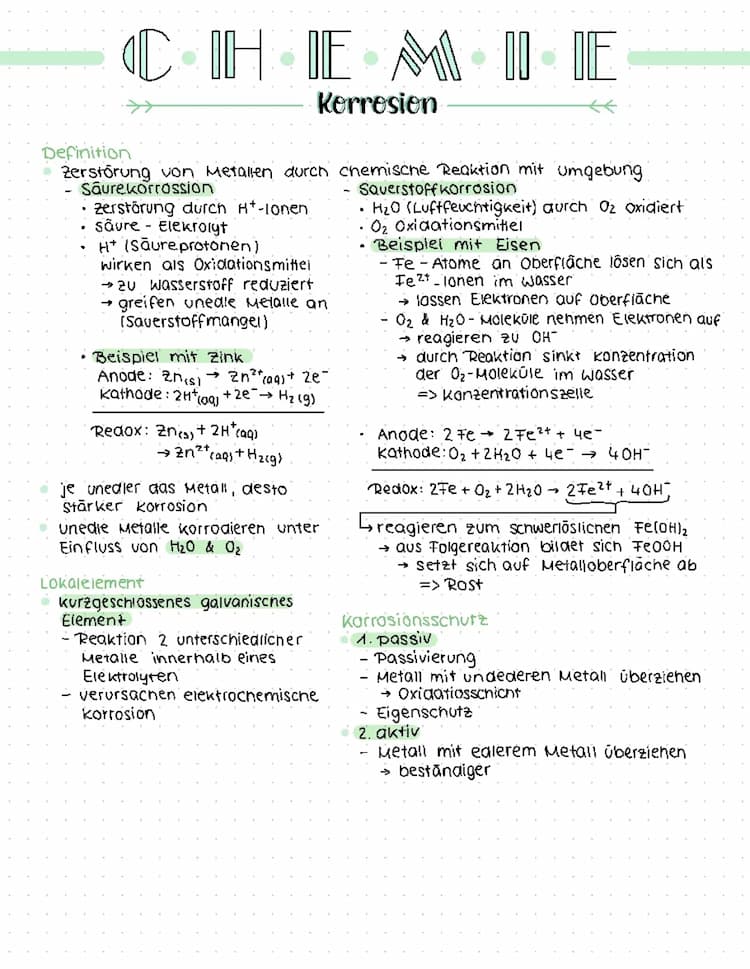 C·H·E·M·I·E
Korrosion
Definition
Zerstörung von Metallen durch chemische Reaktion mit Umgebung
- Säurekorrossion
· Zerstörung durch H⁺-Ionen
· Säure - Elekrolyt
· H⁺ (Säureprotonen)
wirken als Oxidationsmittel
→ zu Wasserstoff reduziert
→ greifen unedle Metalle an
(Sauerstoffmangel)
· Beispiel mit Zink
Anode: Zn(s) → Zn²⁺(aq) + 2e⁻
Kathode: 2H⁺(aq) + 2e⁻ → H₂(g)
Redox: Zn(s) + 2H⁺(aq)
→ Zn²⁺(aq) + H₂(g)
je unedler das Metall, desto
stärker Korrosion
unedle Metalle korrodieren unter
Einfluss von H₂O & O₂
Lokalelement
kurzgeschlossenes galvanisches
Element
- Reaktion 2 unterschiedlicher
Metalle innerhalb eines
Elektrolyten
- verursachen elektrochemische
Korrosion
- Sauerstoffkorrosion
· H₂O (Luftfeuchtigkeit) durch O₂ oxidiert
· O₂ Oxidationsmittel
· Beispiel mit Eisen
- Fe - Atome an Oberfläche lösen sich als
Fe²⁺-Ionen im Wasser
→ lassen Elektronen auf Oberfläche
- O₂ & H₂O - Moleküle nehmen Elektronen auf
→ reagieren zu OH⁻
→ durch Reaktion sinkt Konzentration
der O₂-Moleküle im Wasser
=> Konzentrationszelle
· Anode: 2Fe → 2Fe²⁺ + 4e⁻
Kathode: O₂ + 2H₂O + 4e⁻ → 4OH⁻
Redox: 2Fe + O₂ + 2H₂O → 2Fe²⁺ + 4OH⁻
↳ reagieren zum schwerlöslichen Fe(OH)₂
→ aus Folgereaktion bildet sich FeOOH
→ setzt sich auf Metalloberfläche ab
=> Rost
Korrosionsschutz
1. passiv
- Passivierung
- Metall mit undederen Metall überziehen
→ Oxidatiosschicht
- Eigenschutz
2. aktiv
- Metall mit edlerem Metall überziehen
→ beständiger